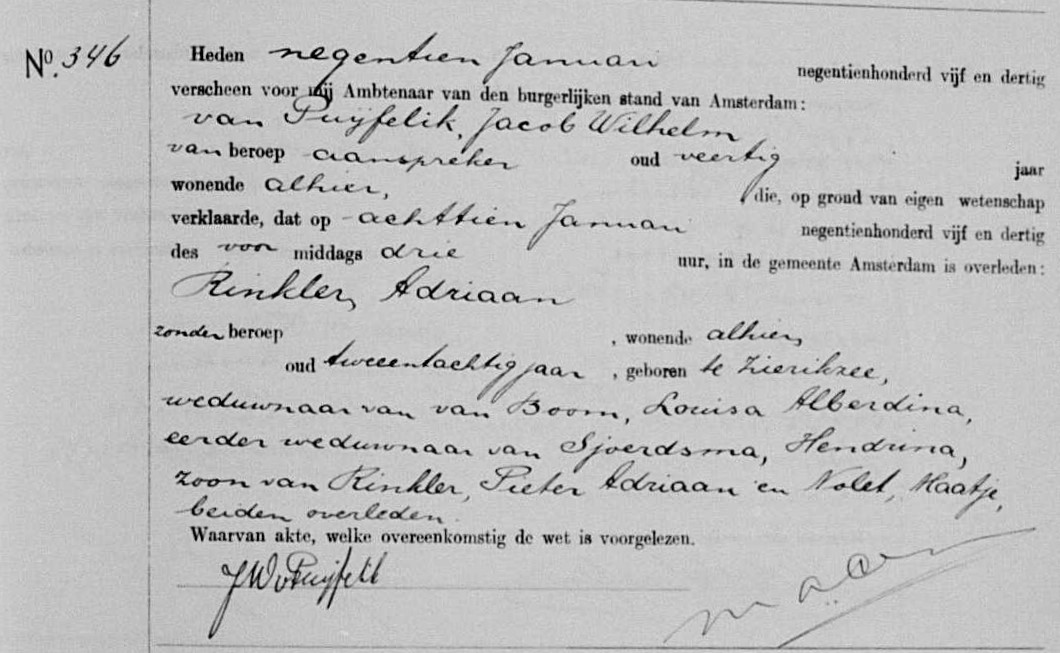 No. 346
Heden negentien Januari negentienhonderd vijf en dertig
verscheen voor mij Ambtenaar van den burgerlijken stand van Amsterdam:
van Puijfelik, Jacob Wilhelm
van beroep aanspreker oud veertig jaar
wonende alhier, die, op grond van eigen wetenschap
verklaarde, dat op achttien Januari negentienhonderd vijf en dertig
des voor middags drie uur, in de gemeente Amsterdam is overleden:
Rinkler, Adriaan
zonder beroep , wonende alhier,
oud tweeentachtig jaar , geboren te Zierikzee,
weduwnaar van van Boom, Louisa Alberdina,
eerder weduwnaar van Sjoerdsma, Hendrina,
zoon van Rinkler, Pieter Adriaan en Nolet, Maatje,
beiden overleden.
Waarvan akte, welke overeenkomstig de wet is voorgelezen.
JWvPuijfelik